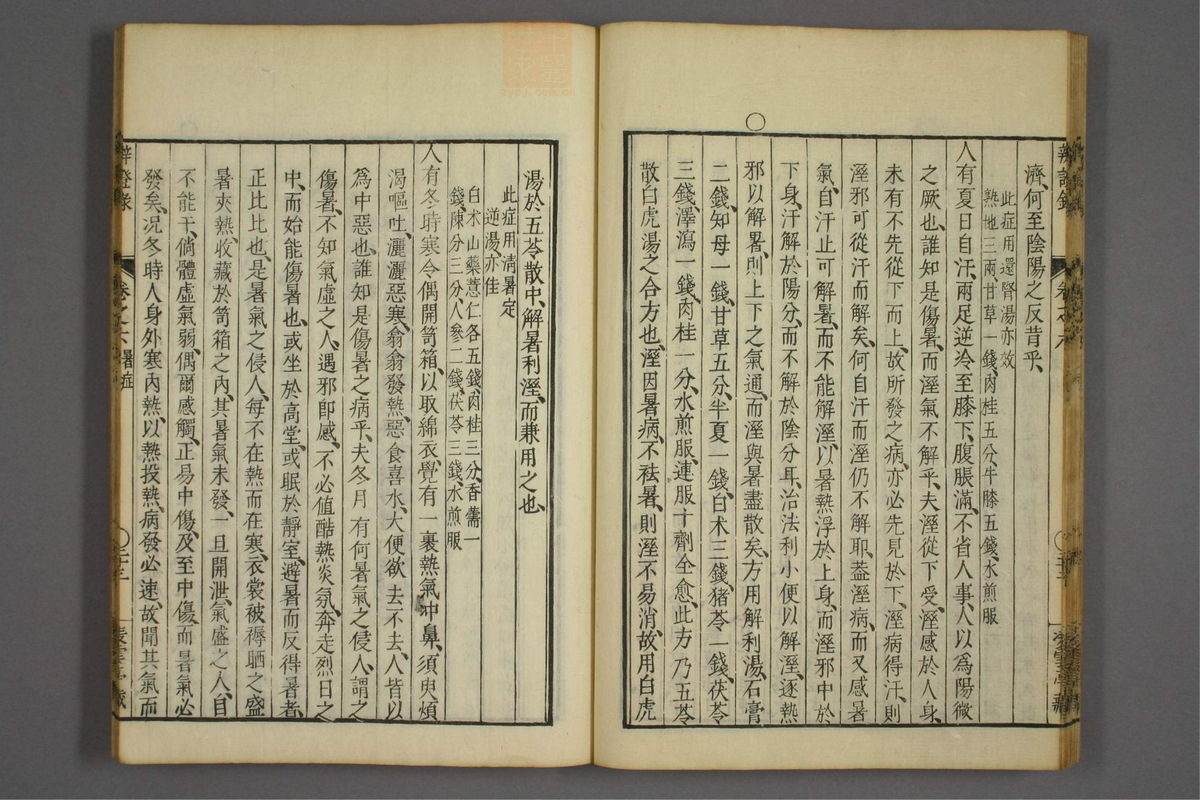 濟何至陰陽之反背乎
此症用還腎湯亦效
熟地三兩甘草一錢肉桂五分牛膝五錢水煎服
人有夏日自汗兩足逆冷至膝下腹脹滿不省人事人以為陽微
之厥也誰知是傷暑而溼氣不解乎夫溼從下受溼感於人身
未有不先從下而上故所發之病亦必先見於下溼病得汗則
溼邪可從汗而解矣何自汗而溼仍不解耶蓋溼病而又感暑
氣自汗止可解暑而不能解溼以暑熱浮於上身而溼邪中於
下身汗解於陽分而不解於陰分耳治法利小便以解溼逐熱
邪以解暑則上下之氣通而溼與暑盡散矣方用解利湯石膏
二錢知母一錢甘草五分半夏一錢白术三錢猪苓一錢茯苓
三錢澤瀉一錢肉桂一分水煎服連服十劑全愈此方乃五苓
散白虎湯之合方也溼因暑病不袪暑則溼不易消故用白虎
湯於五苓散中解暑利溼而兼用之也
此症用清暑定
逆湯亦佳
白术山藥薏仁各五錢肉桂三分香薷一
錢陳分三分人參二錢茯苓三錢水煎服
人有冬時寒令偶開笥箱以取綿衣覺有一裹熱氣冲鼻須臾煩
渴嘔吐灑灑惡寒翕翕發熱惡食喜水大便欲去不去人皆以
為中惡也誰知是傷暑之病乎夫冬月有何暑氣之侵人謂之
傷暑不知氣虛之人遇邪即感不必值酷熱炎氛奔走烈日之
中而始能傷暑也或坐於高堂或眠於靜室避暑而反得暑者
正比比也是暑氣之侵人每不在熱而在寒衣裳被褥晒之盛
暑夾熱收藏於笥箱之內其暑氣未發一旦開泄氣盛之人自
不能干倘體虛氣弱偶爾感觸正易中傷及至中傷而暑氣必
發矣況冬時人身外寒內熱以熱投熱病發必速故聞其氣而
辨證錄
卷之六
暑症